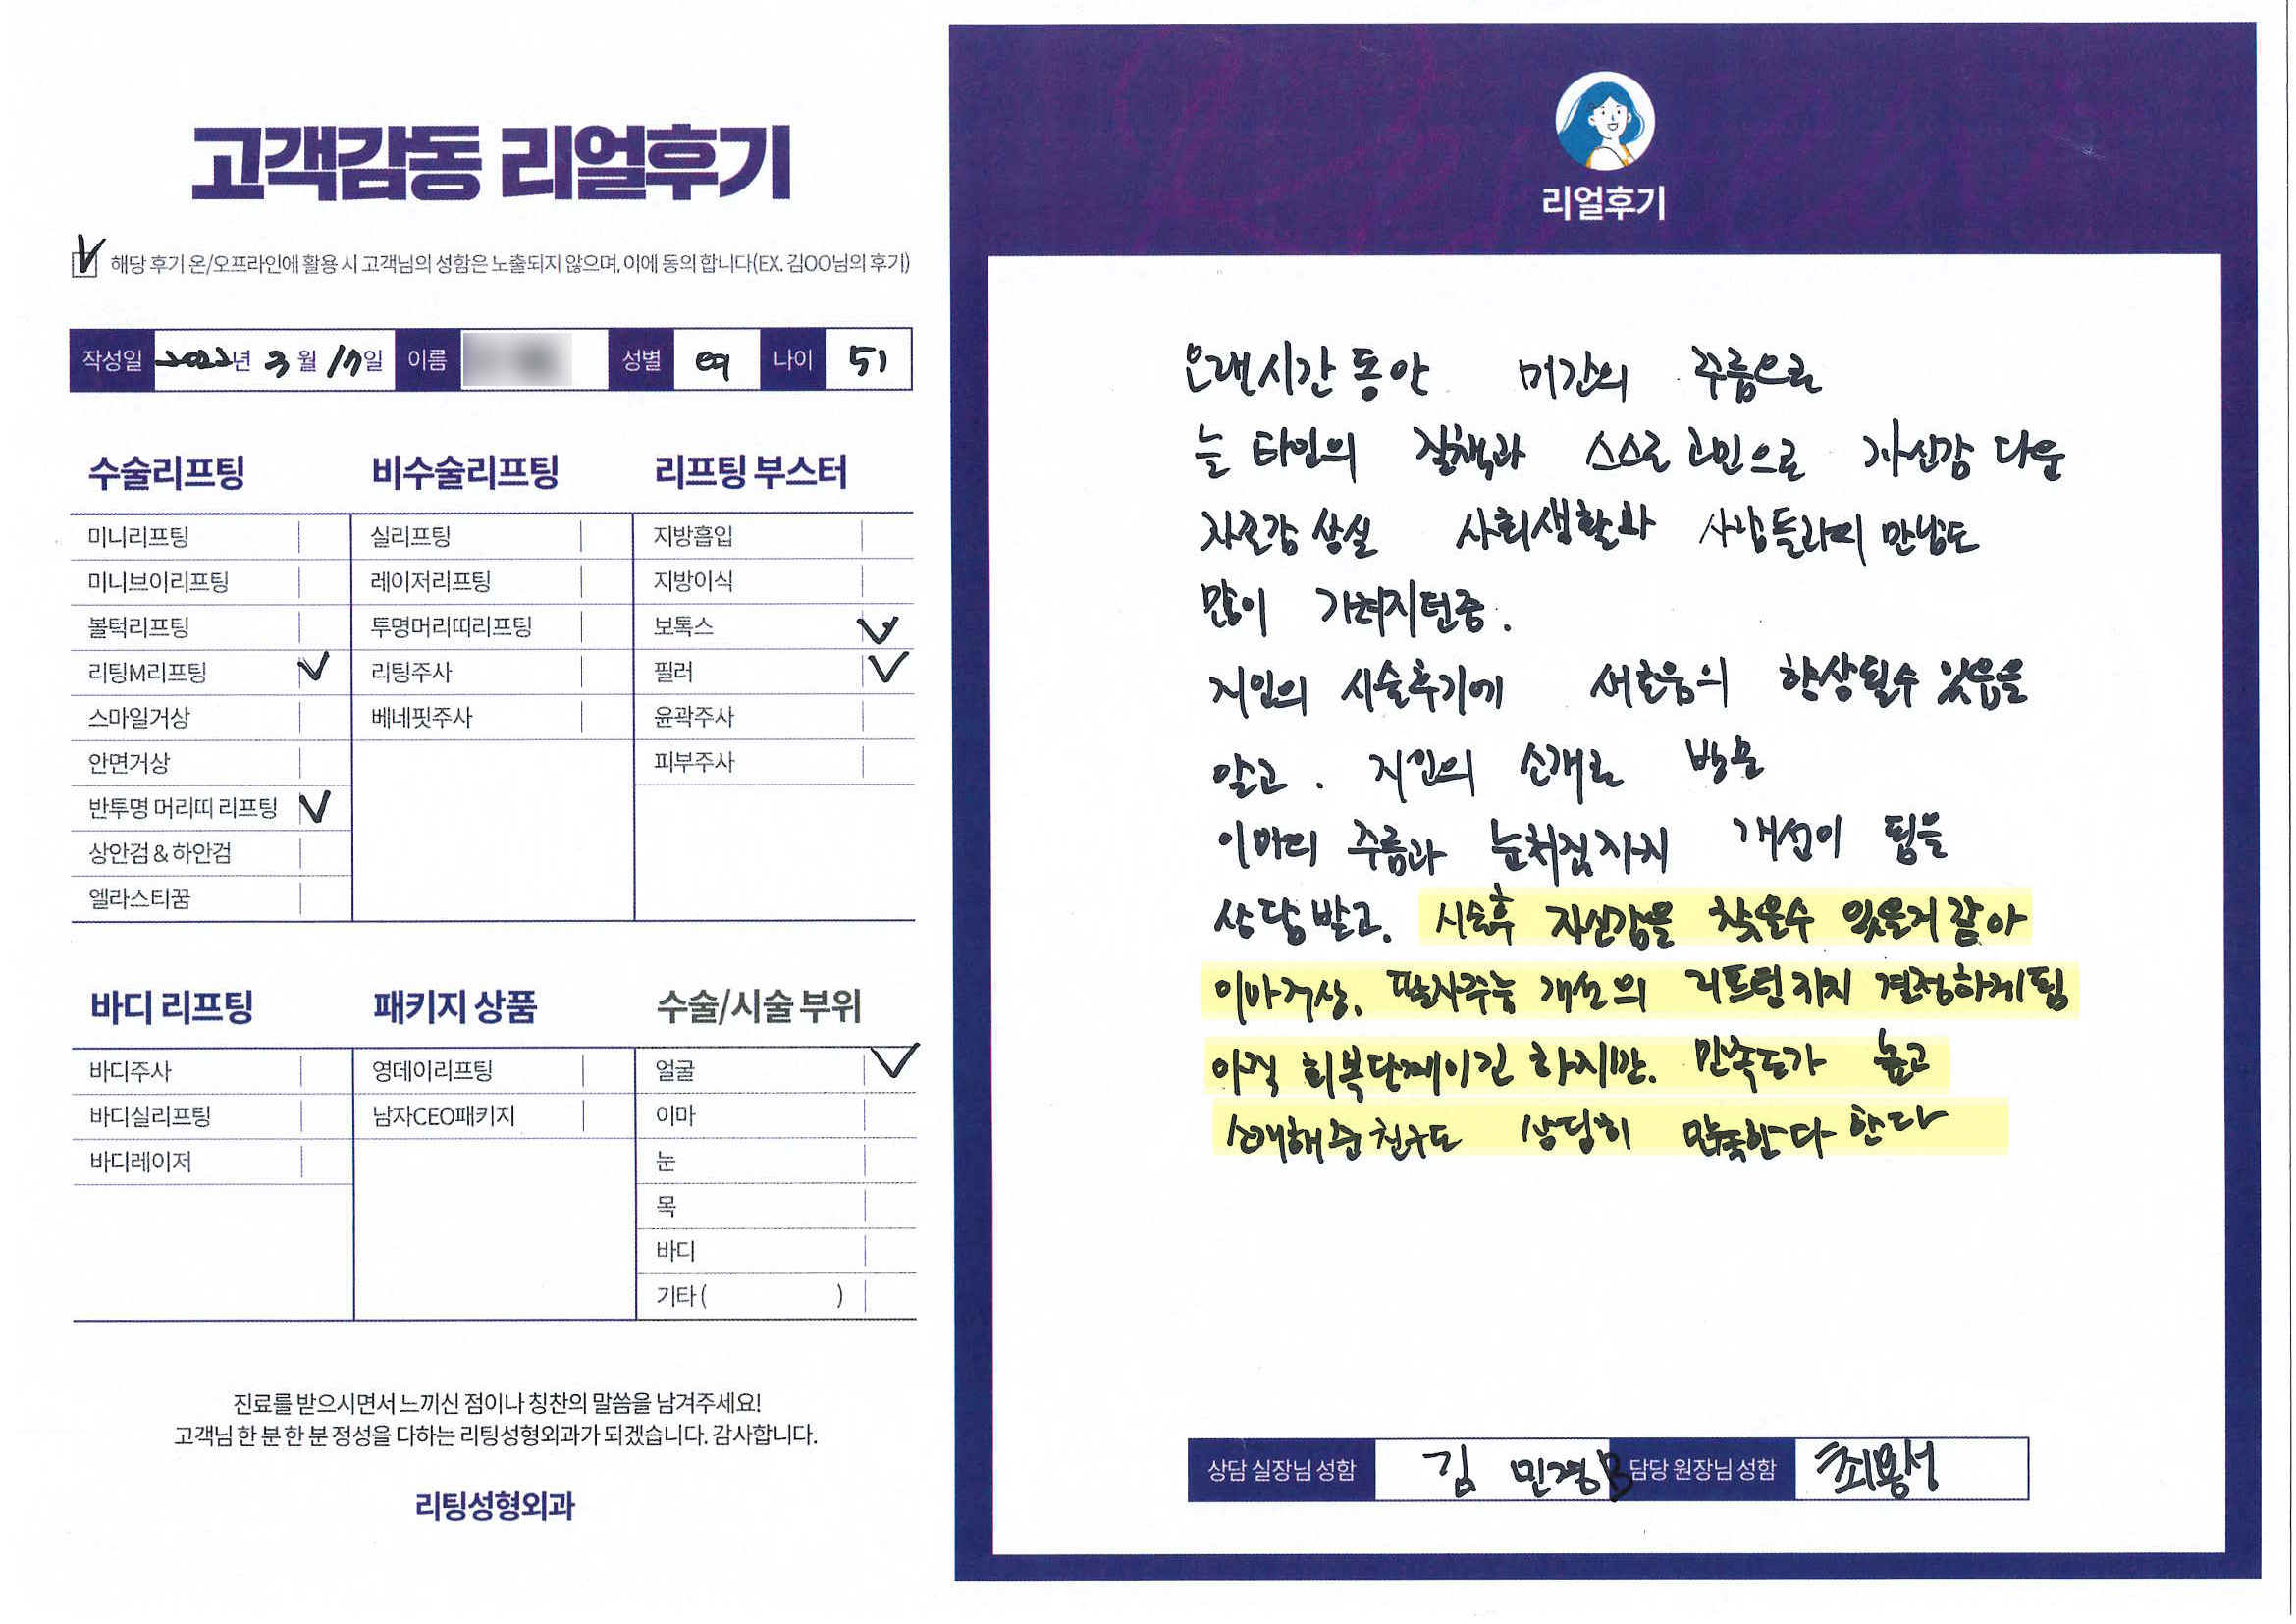 고객감동 리얼후기
해당 후기 온/오프라인에 활용 시 고객님의 성함은 노출되지 않으며, 이에 동의 합니다(EX. 김OO님의 후기)
작성일 2022년 3월 17일 이름 성별 여 나이 51
수술리프팅
미니리프팅
미니브이리프팅
볼턱리프팅
리팅M리프팅
스마일거상
안면거상
반투명 머리띠 리프팅
상안검 & 하안검
엘라스티꿈
비수술리프팅
실리프팅
레이저리프팅
투명머리띠리프팅
리팅주사
베네핏주사
리프팅 부스터
지방흡입
지방이식
보톡스
필러
윤곽주사
피부주사
바디 리프팅
바디주사
바디실리프팅
바디레이저
패키지 상품
영데이리프팅
남자CEO패키지
수술/시술 부위
얼굴
이마
눈
목
바디
기타 ( )
진료를 받으시면서 느끼신 점이나 칭찬의 말씀을 남겨주세요!
고객님 한 분 한 분 정성을 다하는 리팅성형외과가 되겠습니다. 감사합니다.
리팅성형외과
리얼후기
오랜시간 동안 미간의 주름으로
늘 타인의 질책과 스스로 고민으로 자신감 다운
자존감 상실 사회생활과 사람들과의 만남도
많이 가려지던중.
지인의 시술후기에 새로움의 향상될수 있음을
알고. 지인의 소개로 방문
이마의 주름과 눈처짐까지 개선이 됨을
상담받고. 시술후 자신감을 찾을수 있을거 같아
이마거상. 팔자주름 개선의 리프팅까지 결정하게됨
아직 회복단계이긴 하지만. 만족도가 높고
소개해준 친구도 상당히 만족한다 한다
상담 실장님 성함 김 민경B 담당 원장님 성함